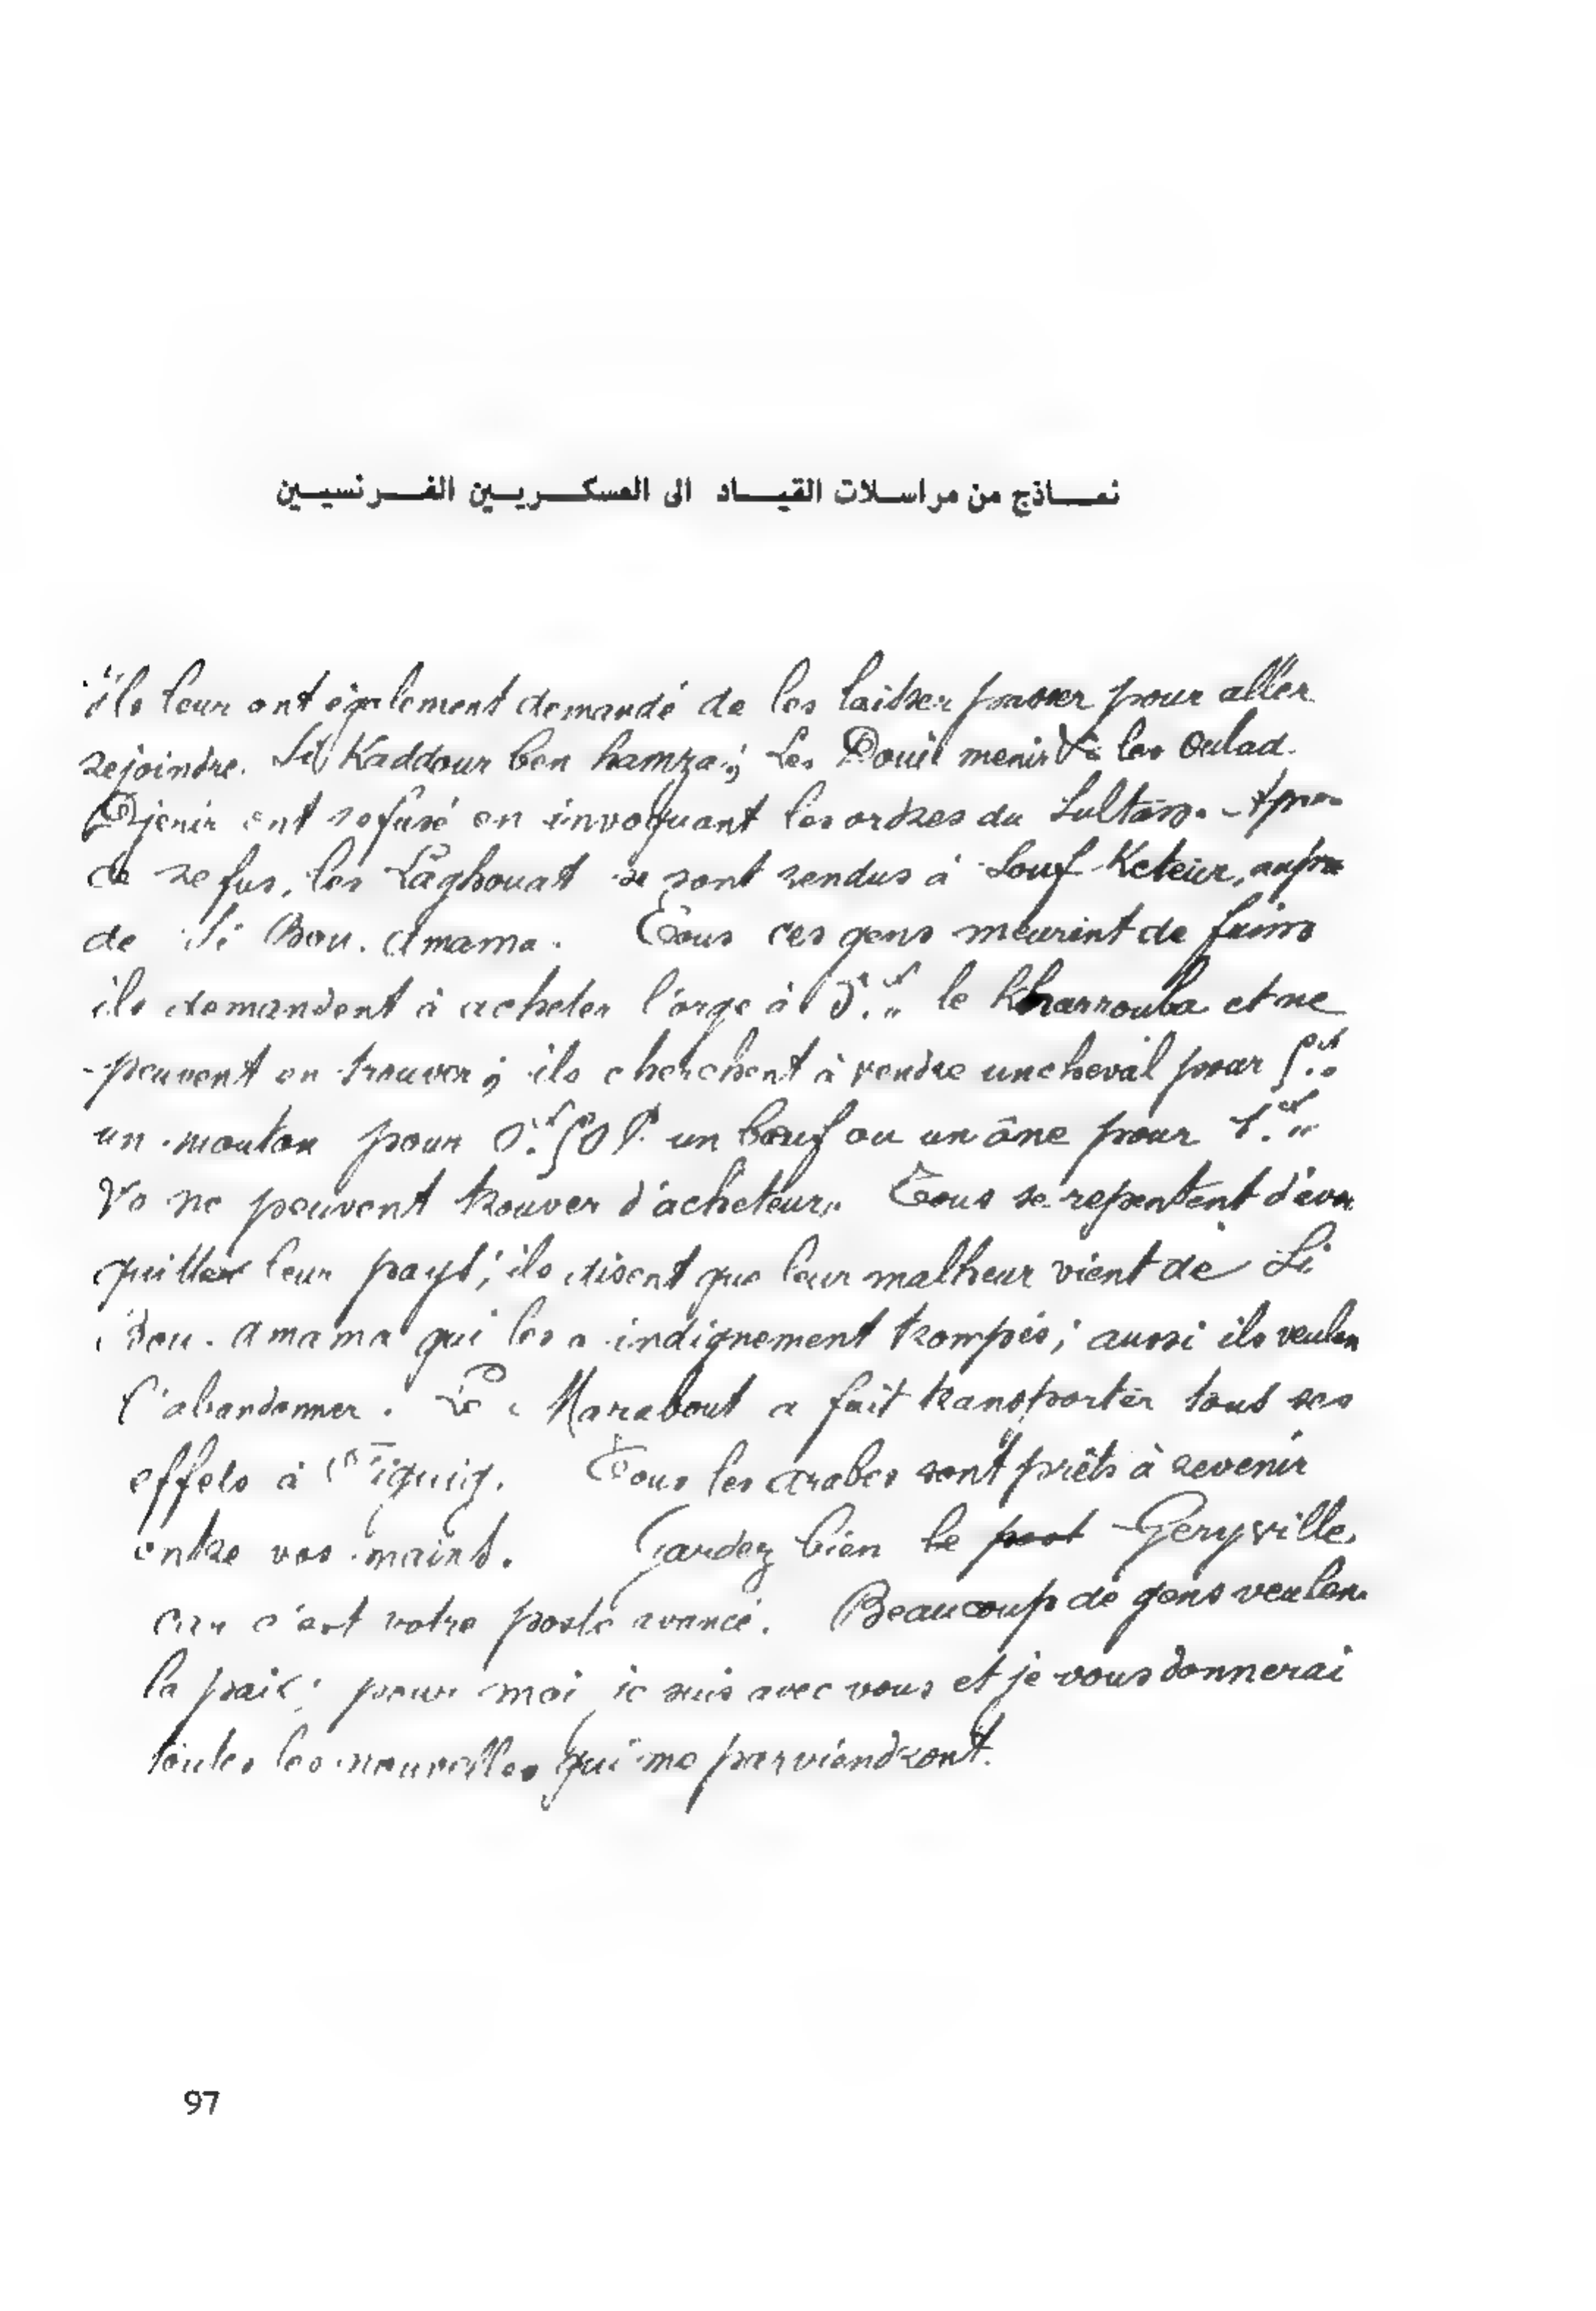 نمـاذج من مراسـلات القيـاد الى العسكـريـين الفـرنسيـين
ils leur ont également demandé de les laisser passer pour aller
rejoindre. Si Kaddour ben hamza; Les Doui menir & les Oulad.
Djerir ont refusé en invoquant les ordres du Sultan. Après
ce refus, les Laghouat se sont rendus à Souf Keteur, auprès
de Si Bou. Amama. Tous ces gens meurent de faim
ils demandent à acheter l'orge à le Kharrouba et ne
peuvent en trouver; ils cherchent à vendre un cheval pour
un mouton pour un bœuf ou un âne pour
ne peuvent trouver d'acheteurs. Tous se repentent d'avoir
quitter leur pays; ils disent que leur malheur vient de Si
Bou. Amama qui les a indignement trompés; aussi ils veulen
l'abandonner. Le Marabout a fait transporter tous ses
effets à Figuig. Tous les arabes sont prêts à revenir
entre vos mains. Gardez bien le Geryville,
car c'est votre poste avancé. Beaucoup de gens veulen
la paix; pour moi je suis avec vous et je vous donnerai
toutes les nouvelles qui me parviendront.
97